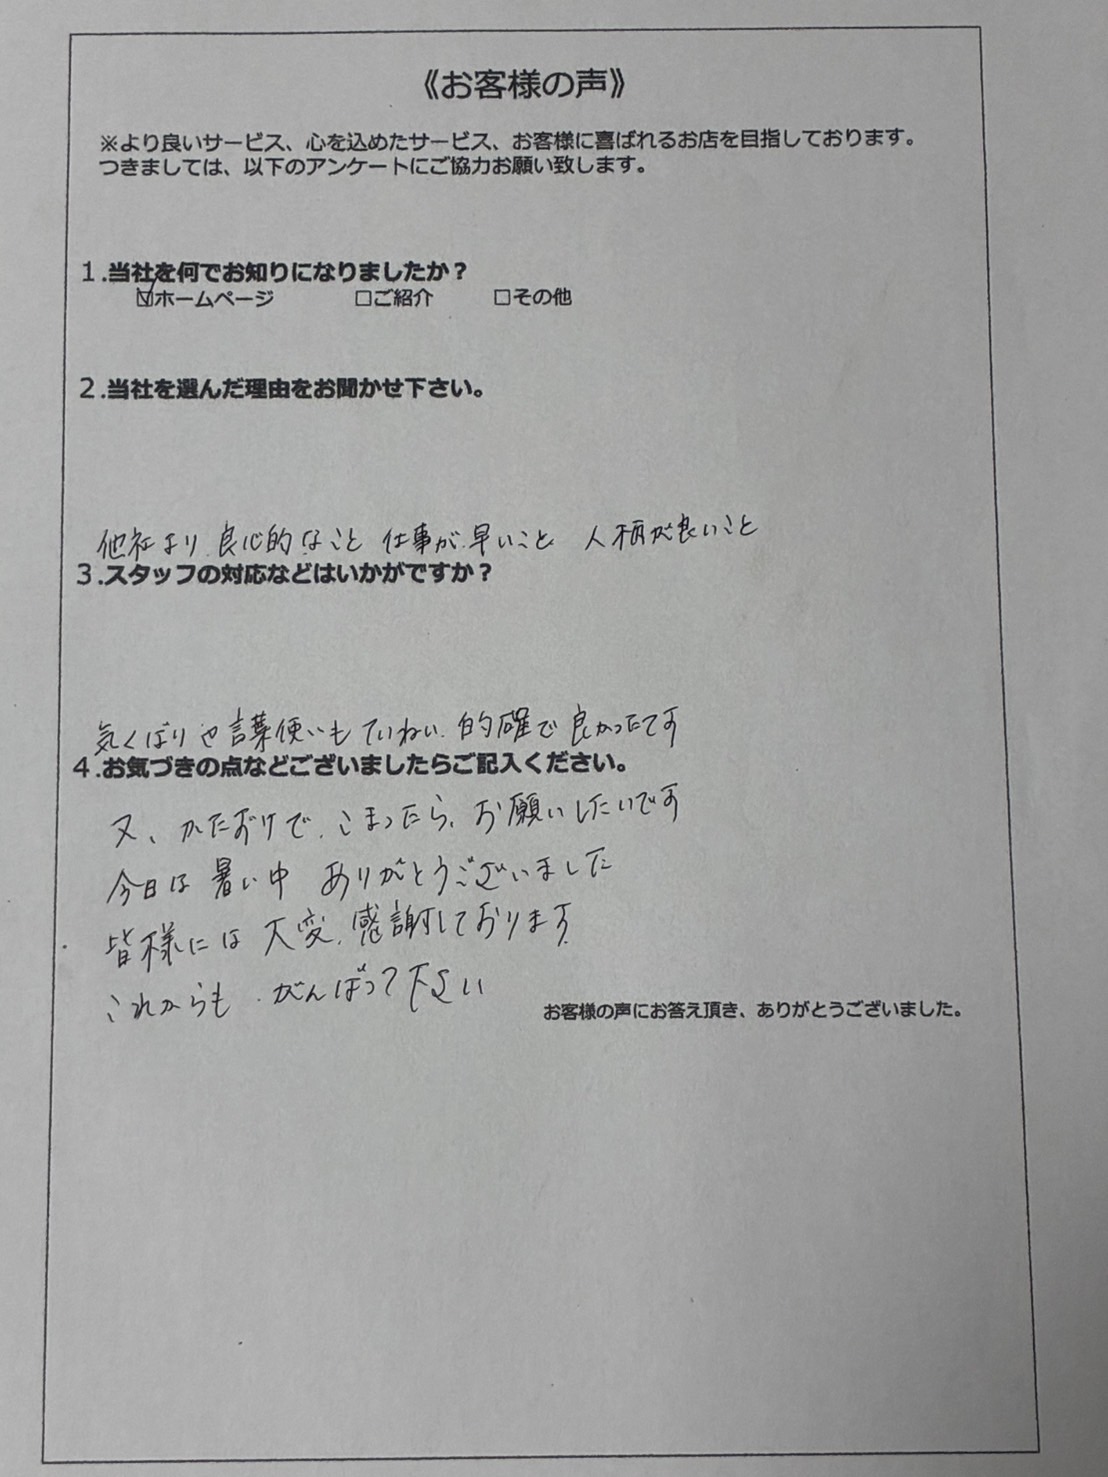 《お客様の声》
※より良いサービス、心を込めたサービス、お客様に喜ばれるお店を目指しております。
つきましては、以下のアンケートにご協力お願い致します。
１.当社を何でお知りになりましたか？
☑ホームページ □ご紹介 □その他
２.当社を選んだ理由をお聞かせ下さい。
他社より 良心的なこと 仕事が早いこと 人柄が良いこと
３.スタッフの対応などはいかがですか？
気くばりや言葉使いもていねい、的確で良かったです
４.お気づきの点などございましたらご記入ください。
又、かたずけで、こまったら、お願いしたいです
今日は暑い中 ありがとうございました
皆様には大変、感謝しております
これからも、がんばって下さい
お客様の声にお答え頂き、ありがとうございました。